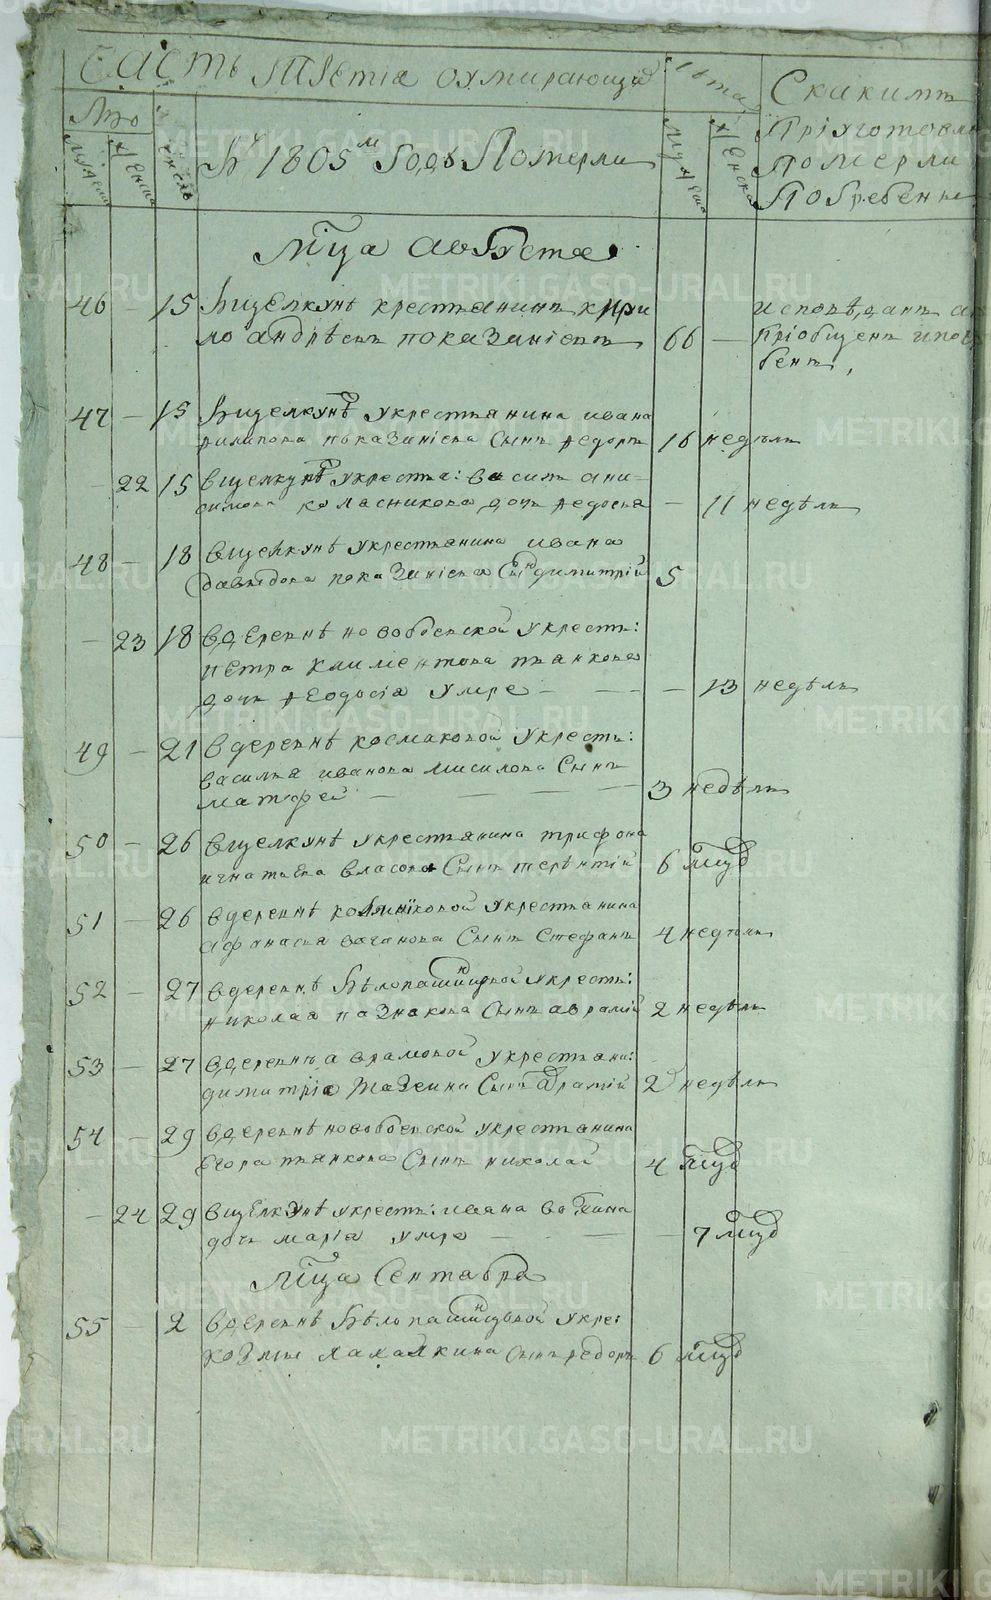 Часть третіа оумирающиⷯ
лѣта
Скакимъ
Пріуготовле
Померли
Погребены
Мужеска
Женска
Число
Въ 1805ᵐ Годѣ Померли
Мⷭца Августа
46 — 15 Вщелкунѣ крестьянинъ кири
ло андрѣевъ показанiевъ 66 —
исповѣданъ
Пріобщенъ
бенъ,
47 — 15 Вщелкунѣ укрестьянина ивана
филипова показаніева Сынъ ѳедоръ 16 недѣль
— 22 15 вщелкунѣ укрестья: василья ани=
симова коласникова дочь ѳедосья — 11 недѣль
48 — 18 вщелкунѣ укрестьянина ивана
давыдова показаніева Сынъ димитрій 5
— 23 18 вдеревнѣ новообвенской укресть:
петра климентова пьянкова
дочь ѳеодосіа умре — — — — 13 недѣль
49 — 21 вдеревнѣ космаковой укресть:
василья иванова мисилова Сынъ
матфей — — — — 3 недѣли
50 — 26 вщелкунѣ укрестьянина трифона
игнатьева власова Сынъ терентій 6 мⷭцъ
51 — 26 вдеревнѣ укрестьянина
афанасья ваганова Сынъ Стефанъ 4 недѣли
52 — 27 вдеревнѣ бѣлопашинцовой укресть:
николая казнакова Сынъ аврамій 2 недѣли
53 — 27 вдеревнѣ аврамовой укрестьяни:
димитріа мазеина Сынъ аврамій 2 недѣли
54 — 29 вдеревнѣ новообвенской укрестьянина
егора пьянкова Сынъ николай 4 мⷭцъ
— 24 29 вщелкунѣ укресть: ивана вотина
дочь маріа умре — — — 7 мⷭцъ
Мⷭца Сентября
55 — 2 вдеревнѣ бѣлопашинцовой укре:
козмы халамкина сынъ ѳедоръ 6 мⷭцъ
METRIKI.GASO-URAL.RU